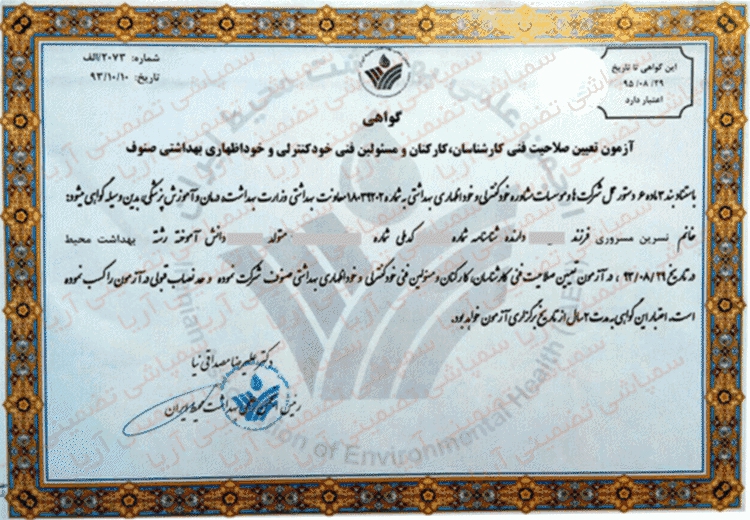 شماره: ۲۰۷۳/الف
تاریخ: ۹۳/۱۰/۱۰
این گواهی تا تاریخ
۹۵/۰۸/۲۹
اعتبار دارد
گواهی
آزمون تعیین صلاحیت فنی کارشناسان، کارکنان و مسئولین فنی خودکنترلی و خوداظهاری بهداشتی صنوف
باستناد بند ۳ ماده ۶ دستور عمل شرکت ها و موسسات مشاوره خودکنترلی و خود اظهاری بهداشتی به شماره ۱۸۰۳۹۲۰۲ معاونت بهداشتی وزارت بهداشت، درمان و آموزش پزشکی، بدین وسیله گواهی میشود:
خانم نسرین مسروری فرزند دارنده شناسنامه شماره کدملی شماره متولد دانش آموخته رشته بهداشت محیط
در تاریخ ۹۳/۰۸/۲۹ ، در آزمون تعیین صلاحیت فنی کارشناسان، کارکنان و مسئولین فنی خودکنترلی و خوداظهاری بهداشتی صنوف شرکت نموده و حد نصاب قبولی در آزمون را کسب نموده
است. اعتبار این گواهی به مدت ۲ سال از تاریخ برگزاری آزمون خواهد بود.
دکتر علیرضا مصداقی نیا
رئیس انجمن علمی بهداشت محیط ایران
سمپاشی تضمینی آریا
of Environmental Health